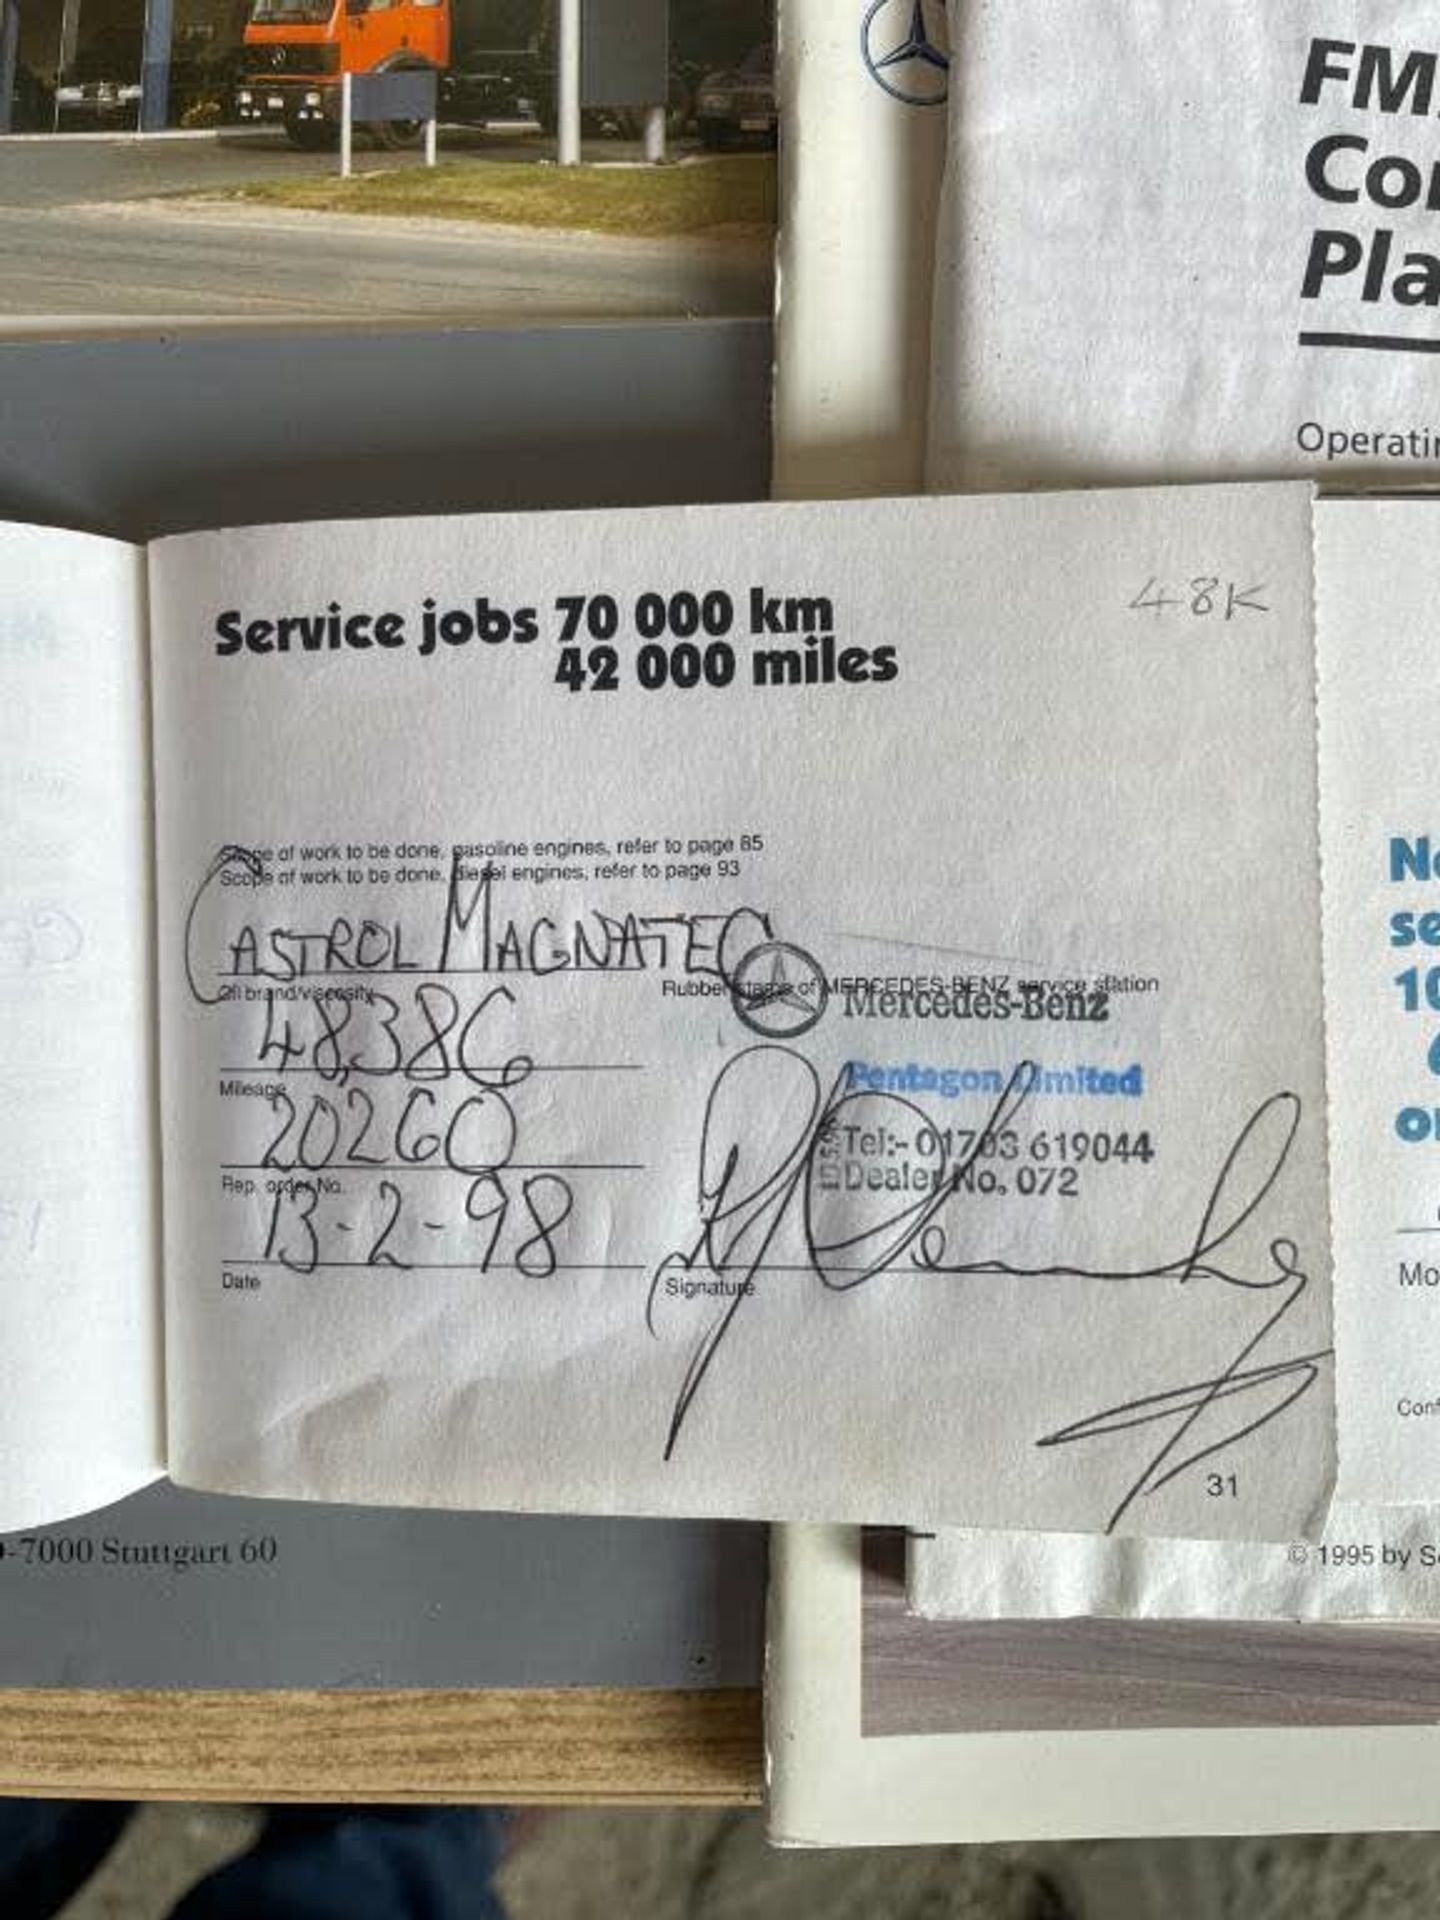 FM
Co
Pla
Operati
48K
Service jobs 70 000 km
42 000 miles
Scope of work to be done, gasoline engines, refer to page 85
Scope of work to be done, diesel engines, refer to page 93
CASTROL MAGNATEC
Oil brand/viscosity
Rubber stamp of MERCEDES-BENZ service station
Mercedes-Benz
48,386
Mileage
Pentagon Limited
20260
Rep. order No.
Tel:- 01703 619044
Dealer No. 072
13-2-98
Date
Signature
31
No
se
10
or
Mo
Conf
-7000 Stuttgart 60
© 1995 by S